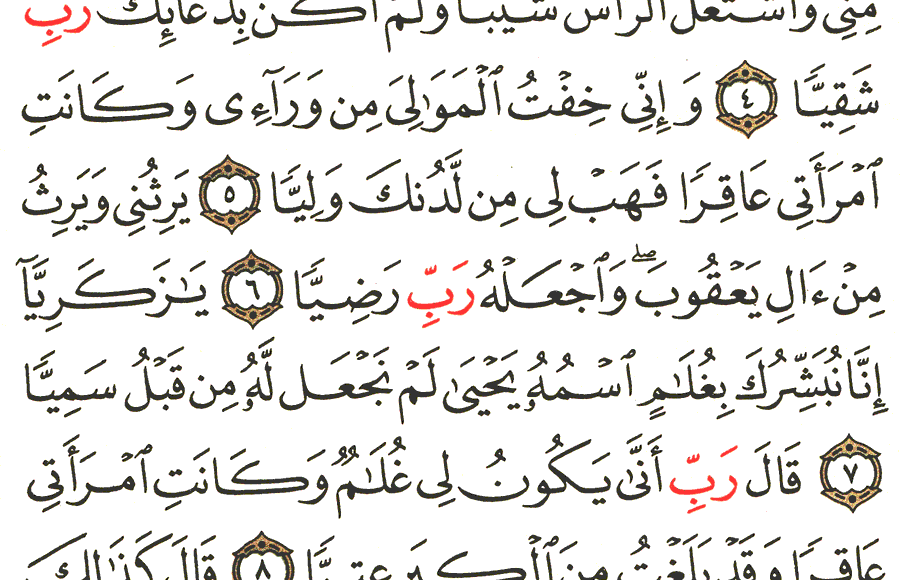 مِنِّى وَٱشْتَعَلَ ٱلرَّأْسُ شَيْبًا وَلَمْ أَكُنۢ بِدُعَآئِكَ رَبِّ
شَقِيًّا ٤ وَإِنِّى خِفْتُ ٱلْمَوَٰلِىَ مِن وَرَآءِى وَكَانَتِ
ٱمْرَأَتِى عَاقِرًا فَهَبْ لِى مِن لَّدُنكَ وَلِيًّا ٥ يَرِثُنِى وَيَرِثُ
مِنْ ءَالِ يَعْقُوبَ ۖ وَٱجْعَلْهُ رَبِّ رَضِيًّا ٦ يَـٰزَكَرِيَّآ
إِنَّا نُبَشِّرُكَ بِغُلَـٰمٍ ٱسْمُهُۥ يَحْيَىٰ لَمْ نَجْعَل لَّهُۥ مِن قَبْلُ سَمِيًّا
٧ قَالَ رَبِّ أَنَّىٰ يَكُونُ لِى غُلَـٰمٌ وَكَانَتِ ٱمْرَأَتِى
عَاقِرًا وَقَدْ بَلَغْتُ مِنَ ٱلْكِبَرِ عِتِيًّا ٨ قَالَ كَذَٰلِكَ